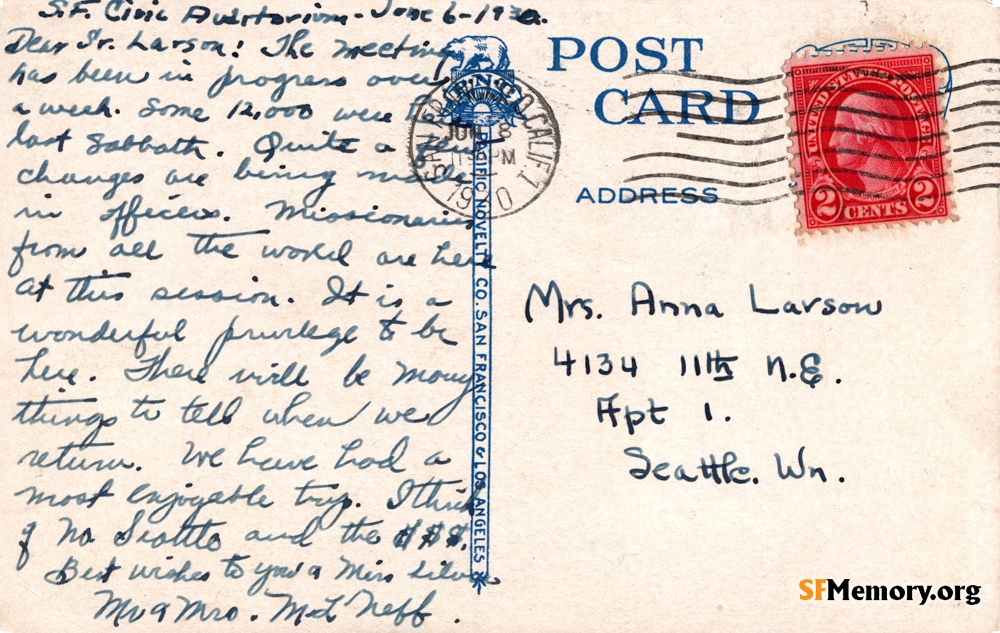 S.F. Civic Auditorium - June 6 - 1930.
Dear Sr. Larson! The meeting
has been in progress over
a week. Some 12,000 were
last Sabbath. Quite a few
changes are being made
in officers. Missionaries
from all the world are here
at this session. It is a
wonderful privilege to be
here. There will be many
things to tell when we
return. We have had a
most enjoyable trip. I think
of No Seattle and the $$$.
Best wishes to you & Miss
Mr & Mrs. M L Neff.
POST
CARD
ADDRESS
SAN FRANCISCO, CALIF. 1
JUN 8
PM
1930
UNITED STATES POSTAGE
2 CENTS 2
PACIFIC NOVELTY CO. SAN FRANCISCO & LOS ANGELES
Mrs. Anna Larson
4134 11th N.E.
Apt 1.
Seattle. Wn.
SFMemory.org